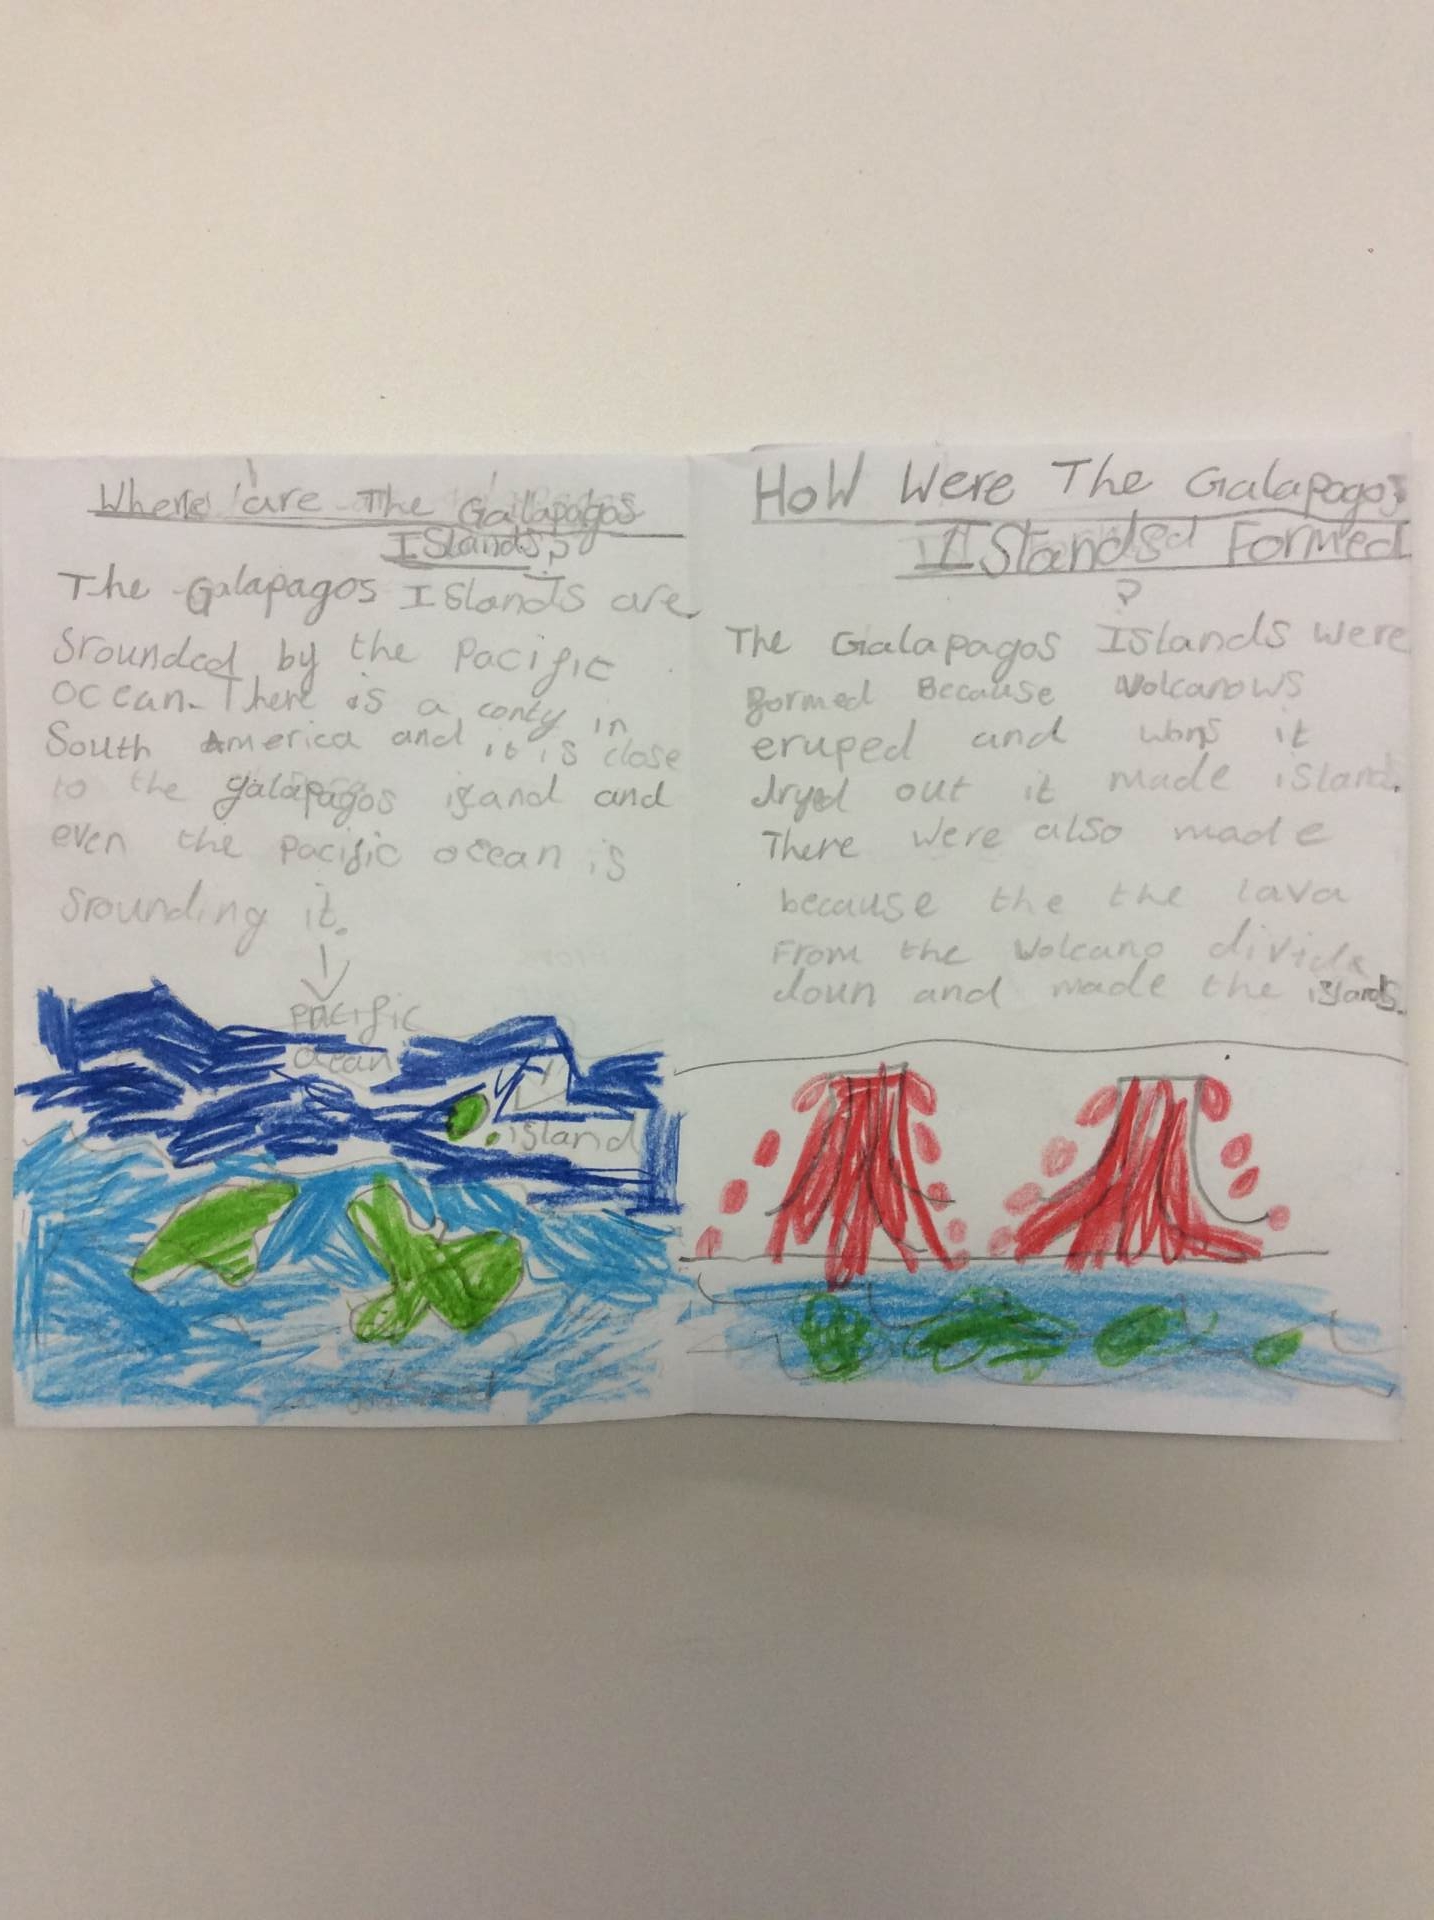 Where are The Galapagos
Islands?
The Galapagos Islands are
Srounded by the pacific
ocean. There is a conty in
South America and it is close
to the galapagos island and
even the pacific ocean is
Srounding it.
pacific
ocean
island
How Were The Galapagos
Islands Formed
?
The Galapagos Islands were
formed Because Volcanows
eruped and wons it
dryed out it made island.
There were also made
because the the lava
From the Volcano divide
doun and made the islands.